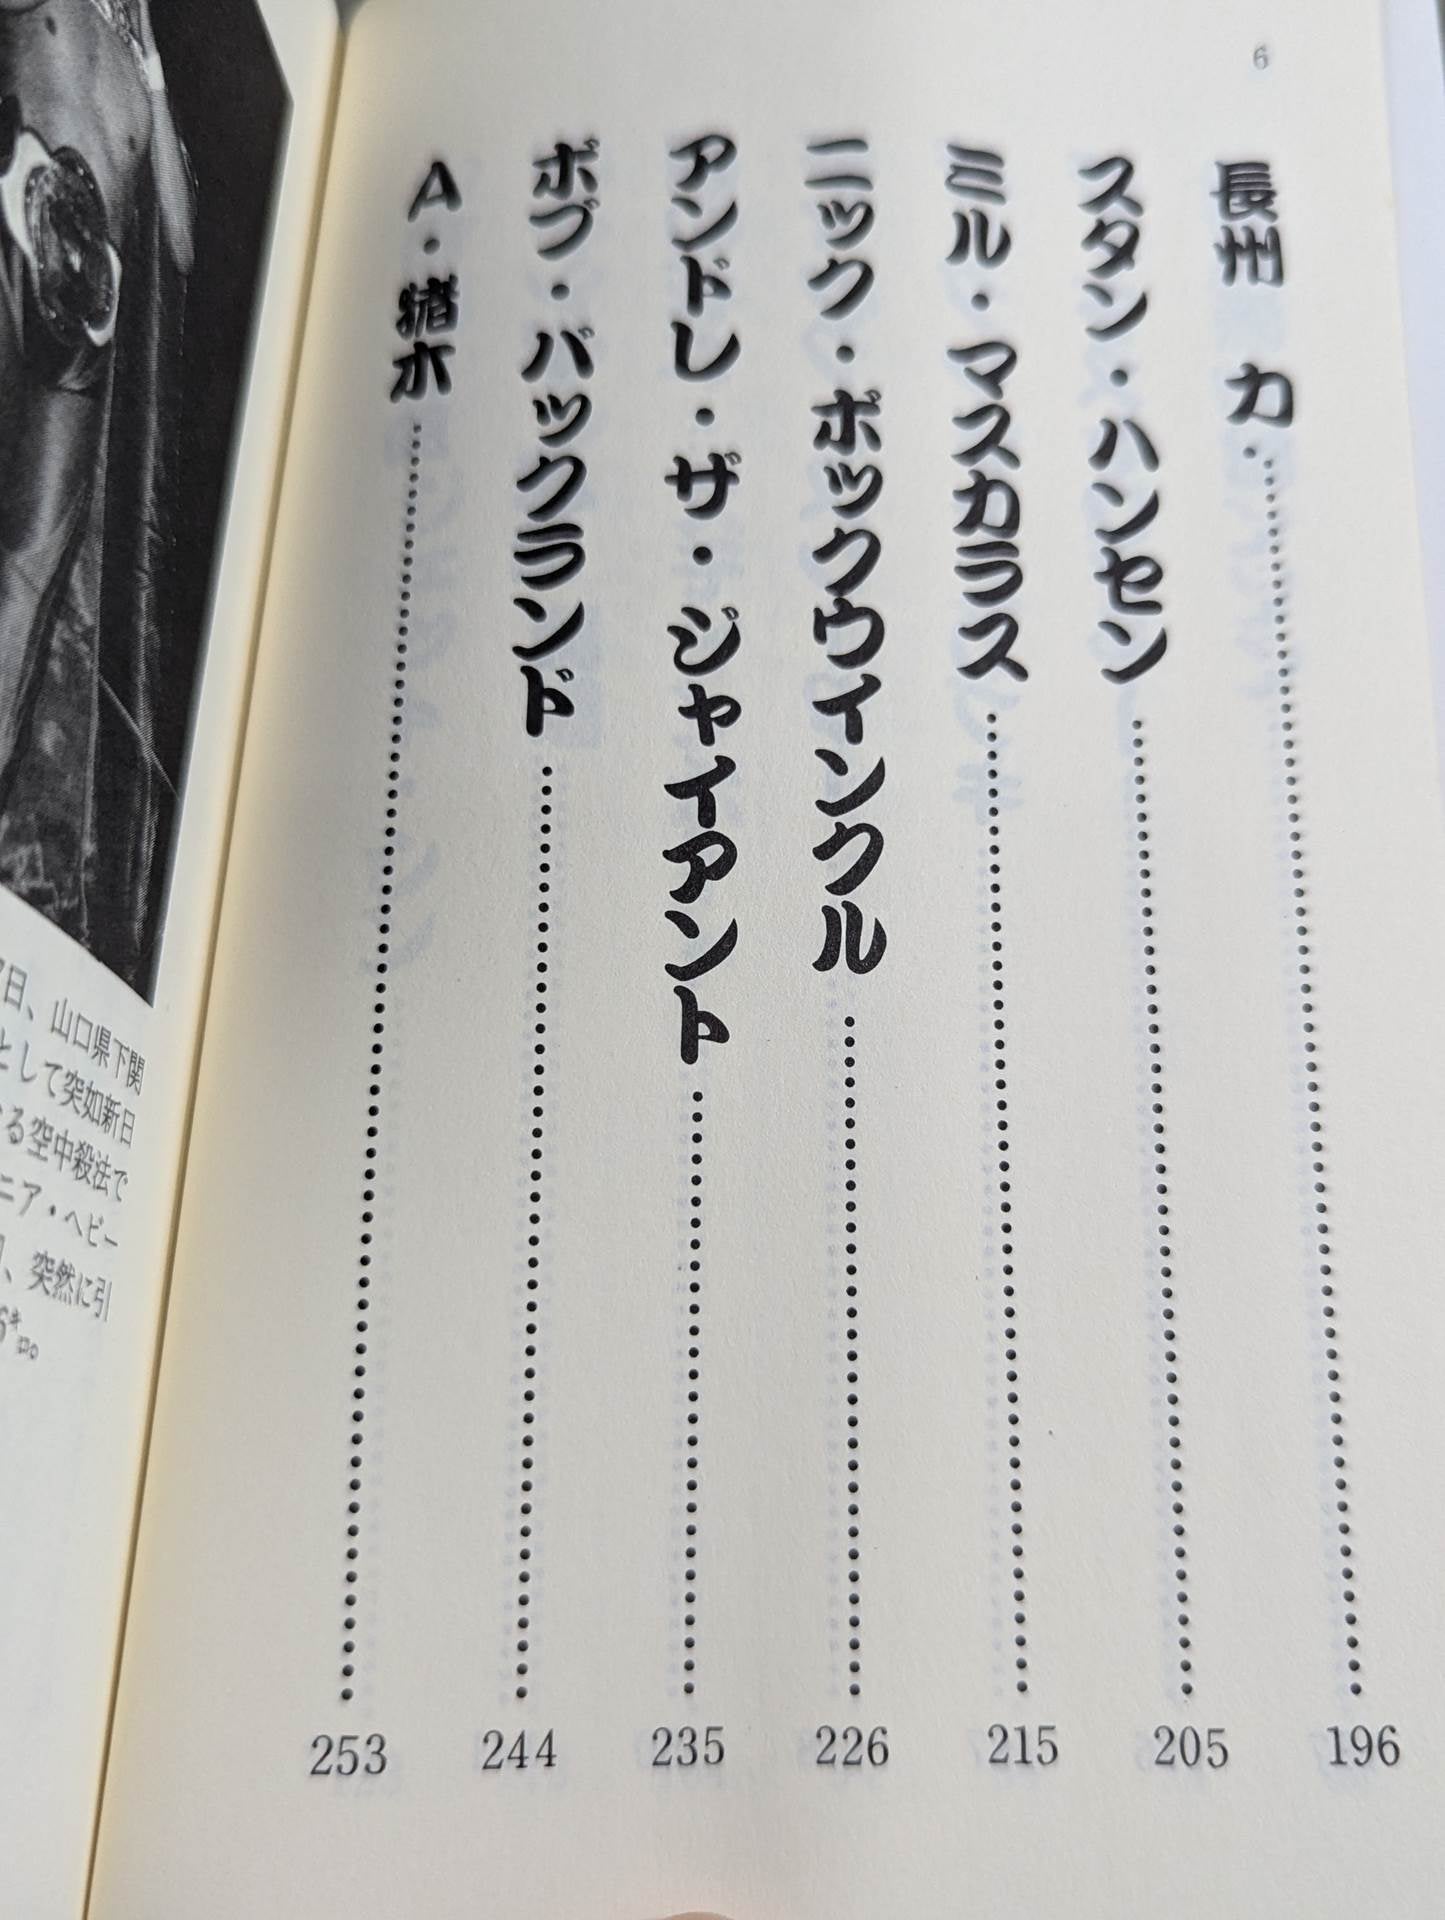 6
長州 力 196
スタン・ハンセン 205
ミル・マスカラス 215
ニック・ボックウインクル 226
アンドレ・ザ・ジャイアント 235
ボブ・バックランド 244
A・猪木 253
7日、山口県下関
として突如新日
る空中殺法で
ニア・ヘビー
、突然に引
6㌔。